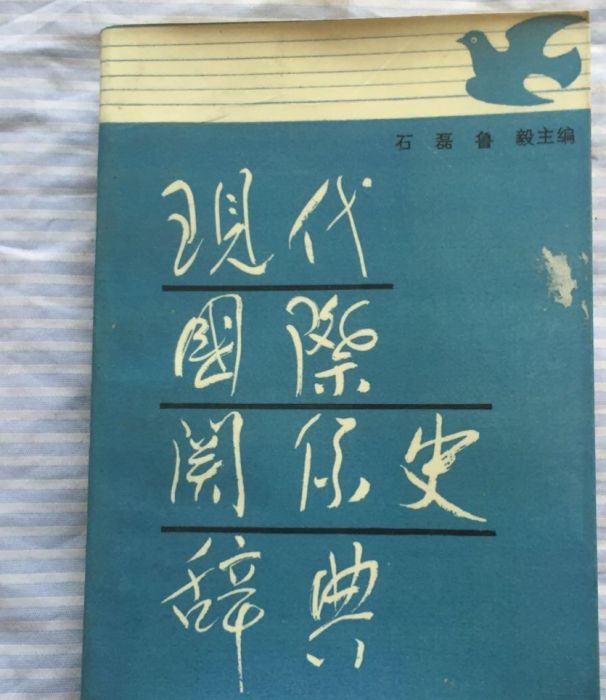 石磊鲁 毅主编
現代
國際
関係史
辞典